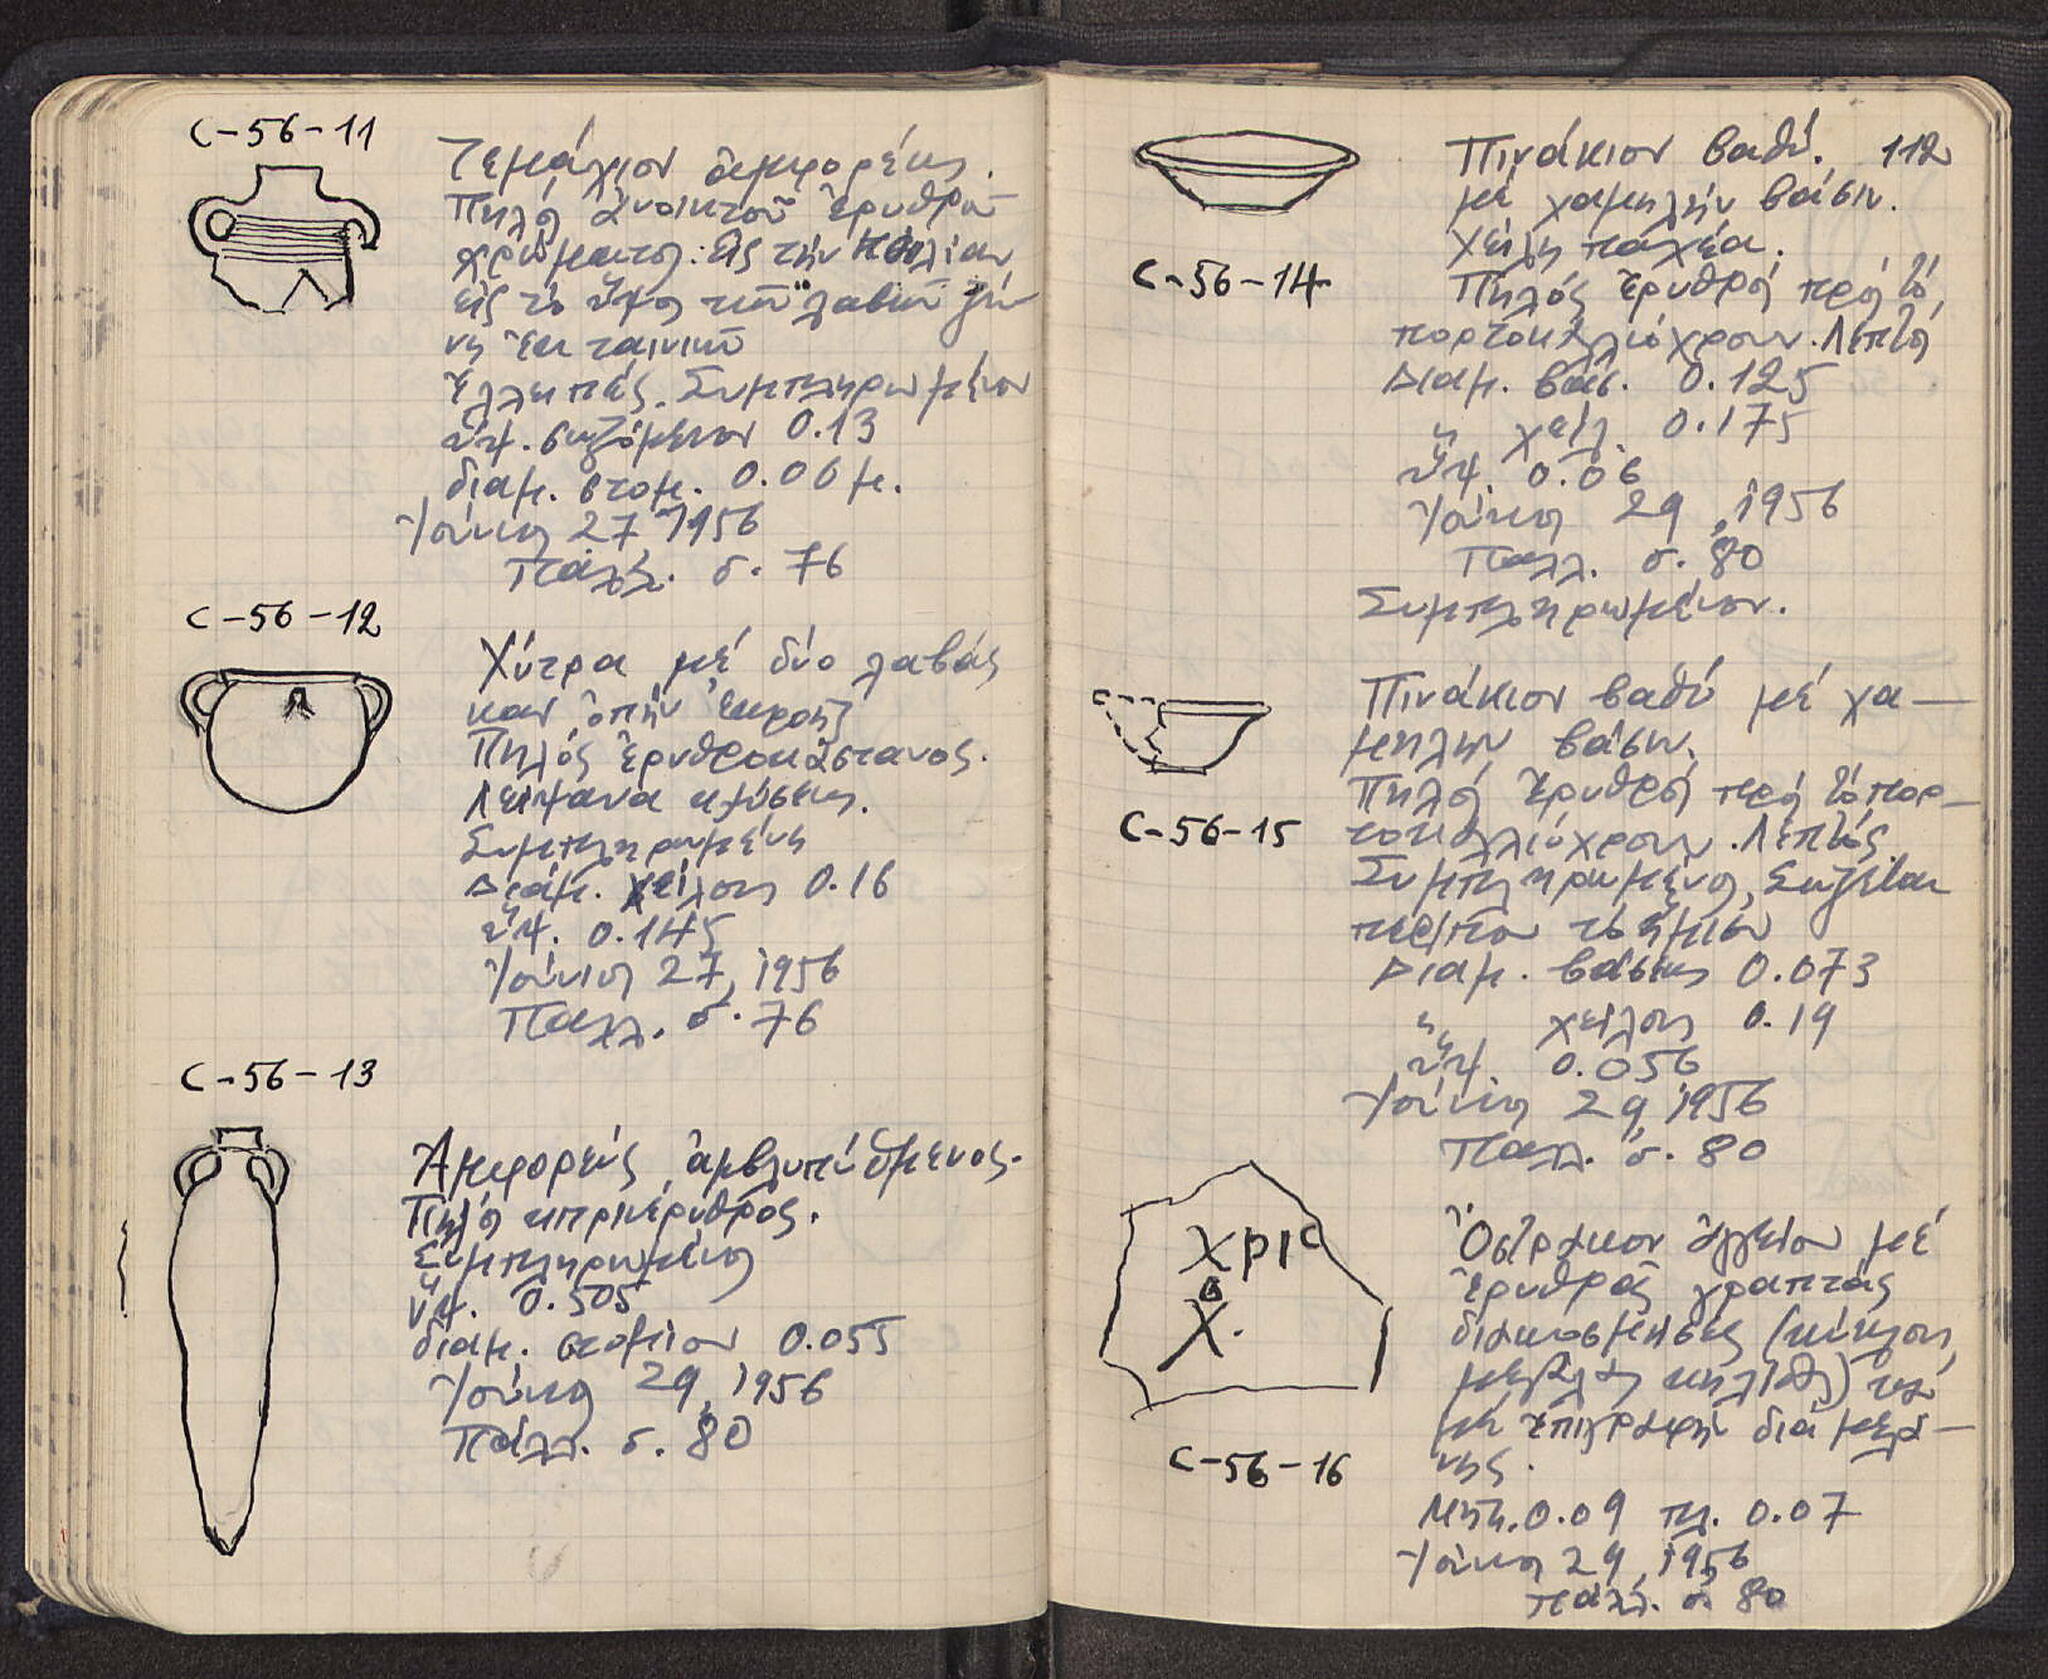 C-56-11
Τεμάχιον ἀμφορέως.
Πηλός ἀνοικτοῦ ἐρυθροῦ
χρώματος. Εἰς τήν κοιλίαν
εἰς τό ὕψος τῶν λαβῶν ζώ-
νη ἐκ ταινιῶν
Ἐλλειπές. Συμπληρωμένον
ὕψ. σωζόμενον 0.13
διαμ. στομ. 0.06 μ.
Ἰούνιος 27, 1956
Παλλ. σ. 76
C-56-12
Χύτρα μέ δύο λαβάς
καί ὀπήν ἐκροῆς
Πηλός ἐρυθροκάστανος.
Λείψανα καύσεως.
Συμπληρωμένη
Διάμ. χείλους 0.16
ὕψ. 0.145
Ἰούνιος 27, 1956
Παλλ. σ. 76
C-56-13
Ἀμφορεύς ἀμβλυπύθμενος.
Πηλός κιτρινέρυθρος.
Συμπληρωμένος
ὕψ. 0.505
διαμ. στομίου 0.055
Ἰούνιος 29, 1956
Πάλλ. σ. 80
112
Πινάκιον βαθύ.
μέ χαμηλήν βάσιν.
χείλη παχέα.
C-56-14
Πηλός ἐρυθρός πρός τό
πορτοκαλλιόχρουν. Λεπτός
Διαμ. βάσ. 0.125
" χείλ. 0.175
ὕψ. 0.06
Ἰούνιος 29, 1956
Παλλ. σ. 80
Συμπληρωμένον.
Πινάκιον βαθύ μέ χα-
μηλήν βάσιν.
Πηλός ἐρυθρός πρός τό πορ-
C-56-15
τοκαλλιόχρουν. Λεπτός.
Συμπληρωμένος, Σώζεται
περίπου τό ἥμισυ
Διαμ. βάσεως 0.073
" χείλους 0.19
ὕψ. 0.056
Ἰούνιος 29, 1956
Παλλ. σ. 80
χρις
χ.
Ὄστρακον ἀγγείου μέ
ἐρυθράς γραπτάς
διακοσμήσεις (κύκλους,
μεγάλας κηλίδας) καί
μέ ἐπιγραφήν διά μελά-
νης.
C-56-16
Μῆκ. 0.09 πλ. 0.07
Ἰούνιος 29, 1956
παλλ. σ. 80